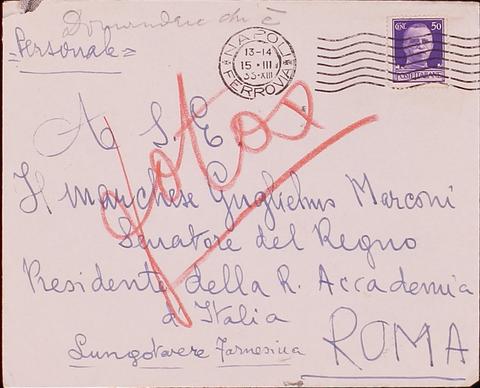 Domandare chi è
=Personale=
NAPOLI
13-14
15 · III
35-XIII
FERROVIA
50
POSTE ITALIANE
fotos
A S. E.
Il marchese Guglielmo Marconi
Senatore del Regno
Presidente della R. Accademia
d'Italia
Lungotevere Farnesina
ROMA